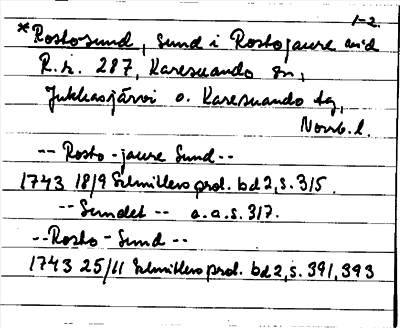 1-2.
*Rosto-sund, sund i Rostojaure vid
R.r. 287, Karesuando sn,
Jukkasjärvi o. Karesuando tg,
Norrb.l.
-- Rosto-jaure Sund --
1743 18/9 Schnitlers prot. bd 2, s. 315.
-- Sundet -- a.a.s. 317.
-- Rosto-Sund --
1743 25/11 Schnitlers prot. bd 2, s. 391, 393